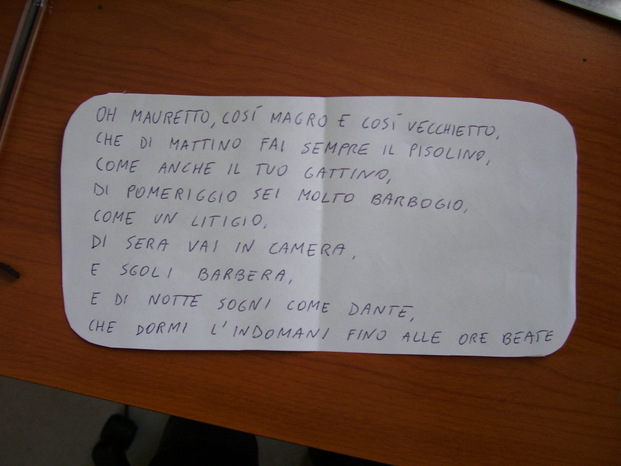 OH MAURETTO, COSÍ MAGRO E COSÍ VECCHIETTO,
CHE DI MATTINO FAI SEMPRE IL PISOLINO,
COME ANCHE IL TUO GATTINO,
DI POMERIGGIO SEI MOLTO BARBOGIO,
COME UN LITIGIO,
DI SERA VAI IN CAMERA,
E SGOLI BARBERA,
E DI NOTTE SOGNI COME DANTE,
CHE DORMI L'INDOMANI FINO ALLE ORE BEATE